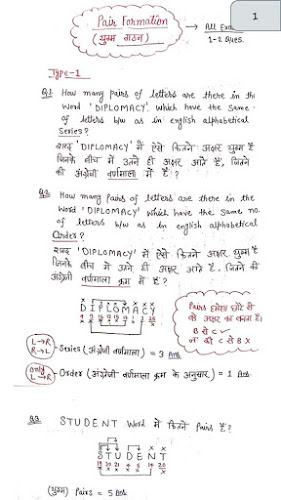 1
Pair Formation
(युग्म गठन)
→ All Exam
1-2 Ques.
Type-1
Q.1 How many pairs of letters are there in the
word 'DIPLOMACY'. Which have the same
of letters b/w as in english alphabetical
Series?
शब्द 'DIPLOMACY' में ऐसे कितने अक्षर युग्म है
जिनके बीच में उतने ही अक्षर आते है, जितने
की अंग्रेजी वर्णमाला में है?
Q.2 How many pairs of letters are there in the
word 'DIPLOMACY' which have the same no.
of letters b/w as in english alphabetical
Order?
शब्द 'DIPLOMACY' में ऐसे कितने अक्षर युग्म है
जिनके बीच में उतने ही अक्षर आते है, जितने की
अंग्रेजी वर्णमाला क्रम में है?
D I P L O M A C Y
Pairs हमेशा छोटे से
बड़े अक्षर का बनता है।
B से C ✓
न की C से B X
L → R
R → L
- Series (अंग्रेजी वर्णमाला) = 3 Ans
only
L → R
- Order (अंग्रेजी वर्णमाला क्रम के अनुसार) = 1 Ans
Q.3 STUDENT word में कितने Pairs है?
S T U D E N T
19 20 21 4 5 14 20
(युग्म) Pairs = 5 Ans